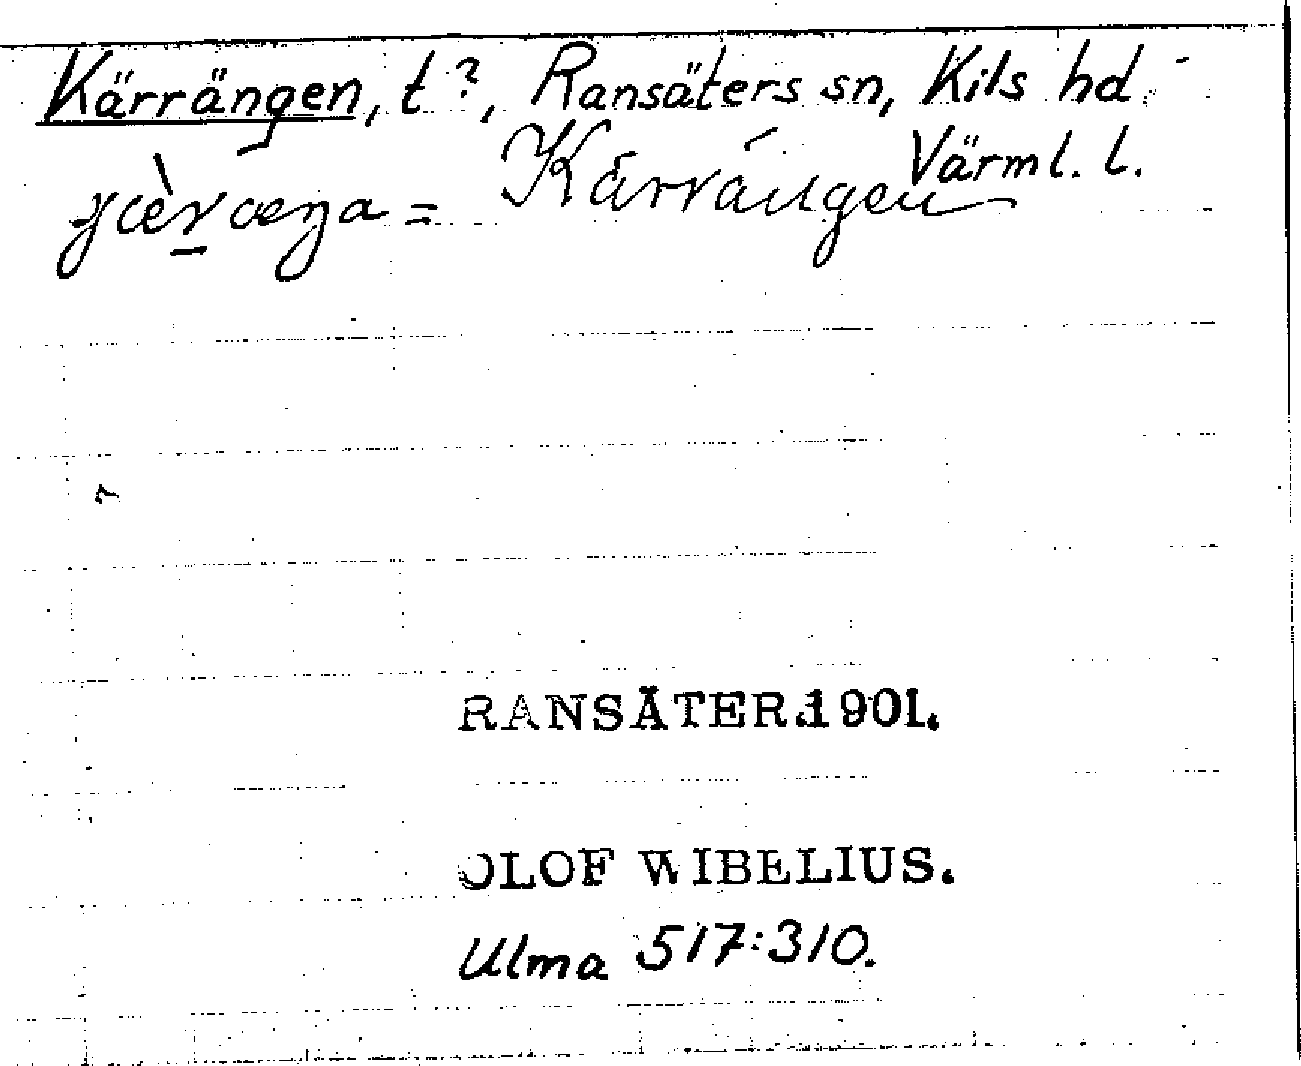 Kärrängen, t?, Ransäters sn, Kils hd
Värml. l.
= Kärrängen
RANSÄTER.1901.
OLOF WIBELIUS.
Ulma 517:310.